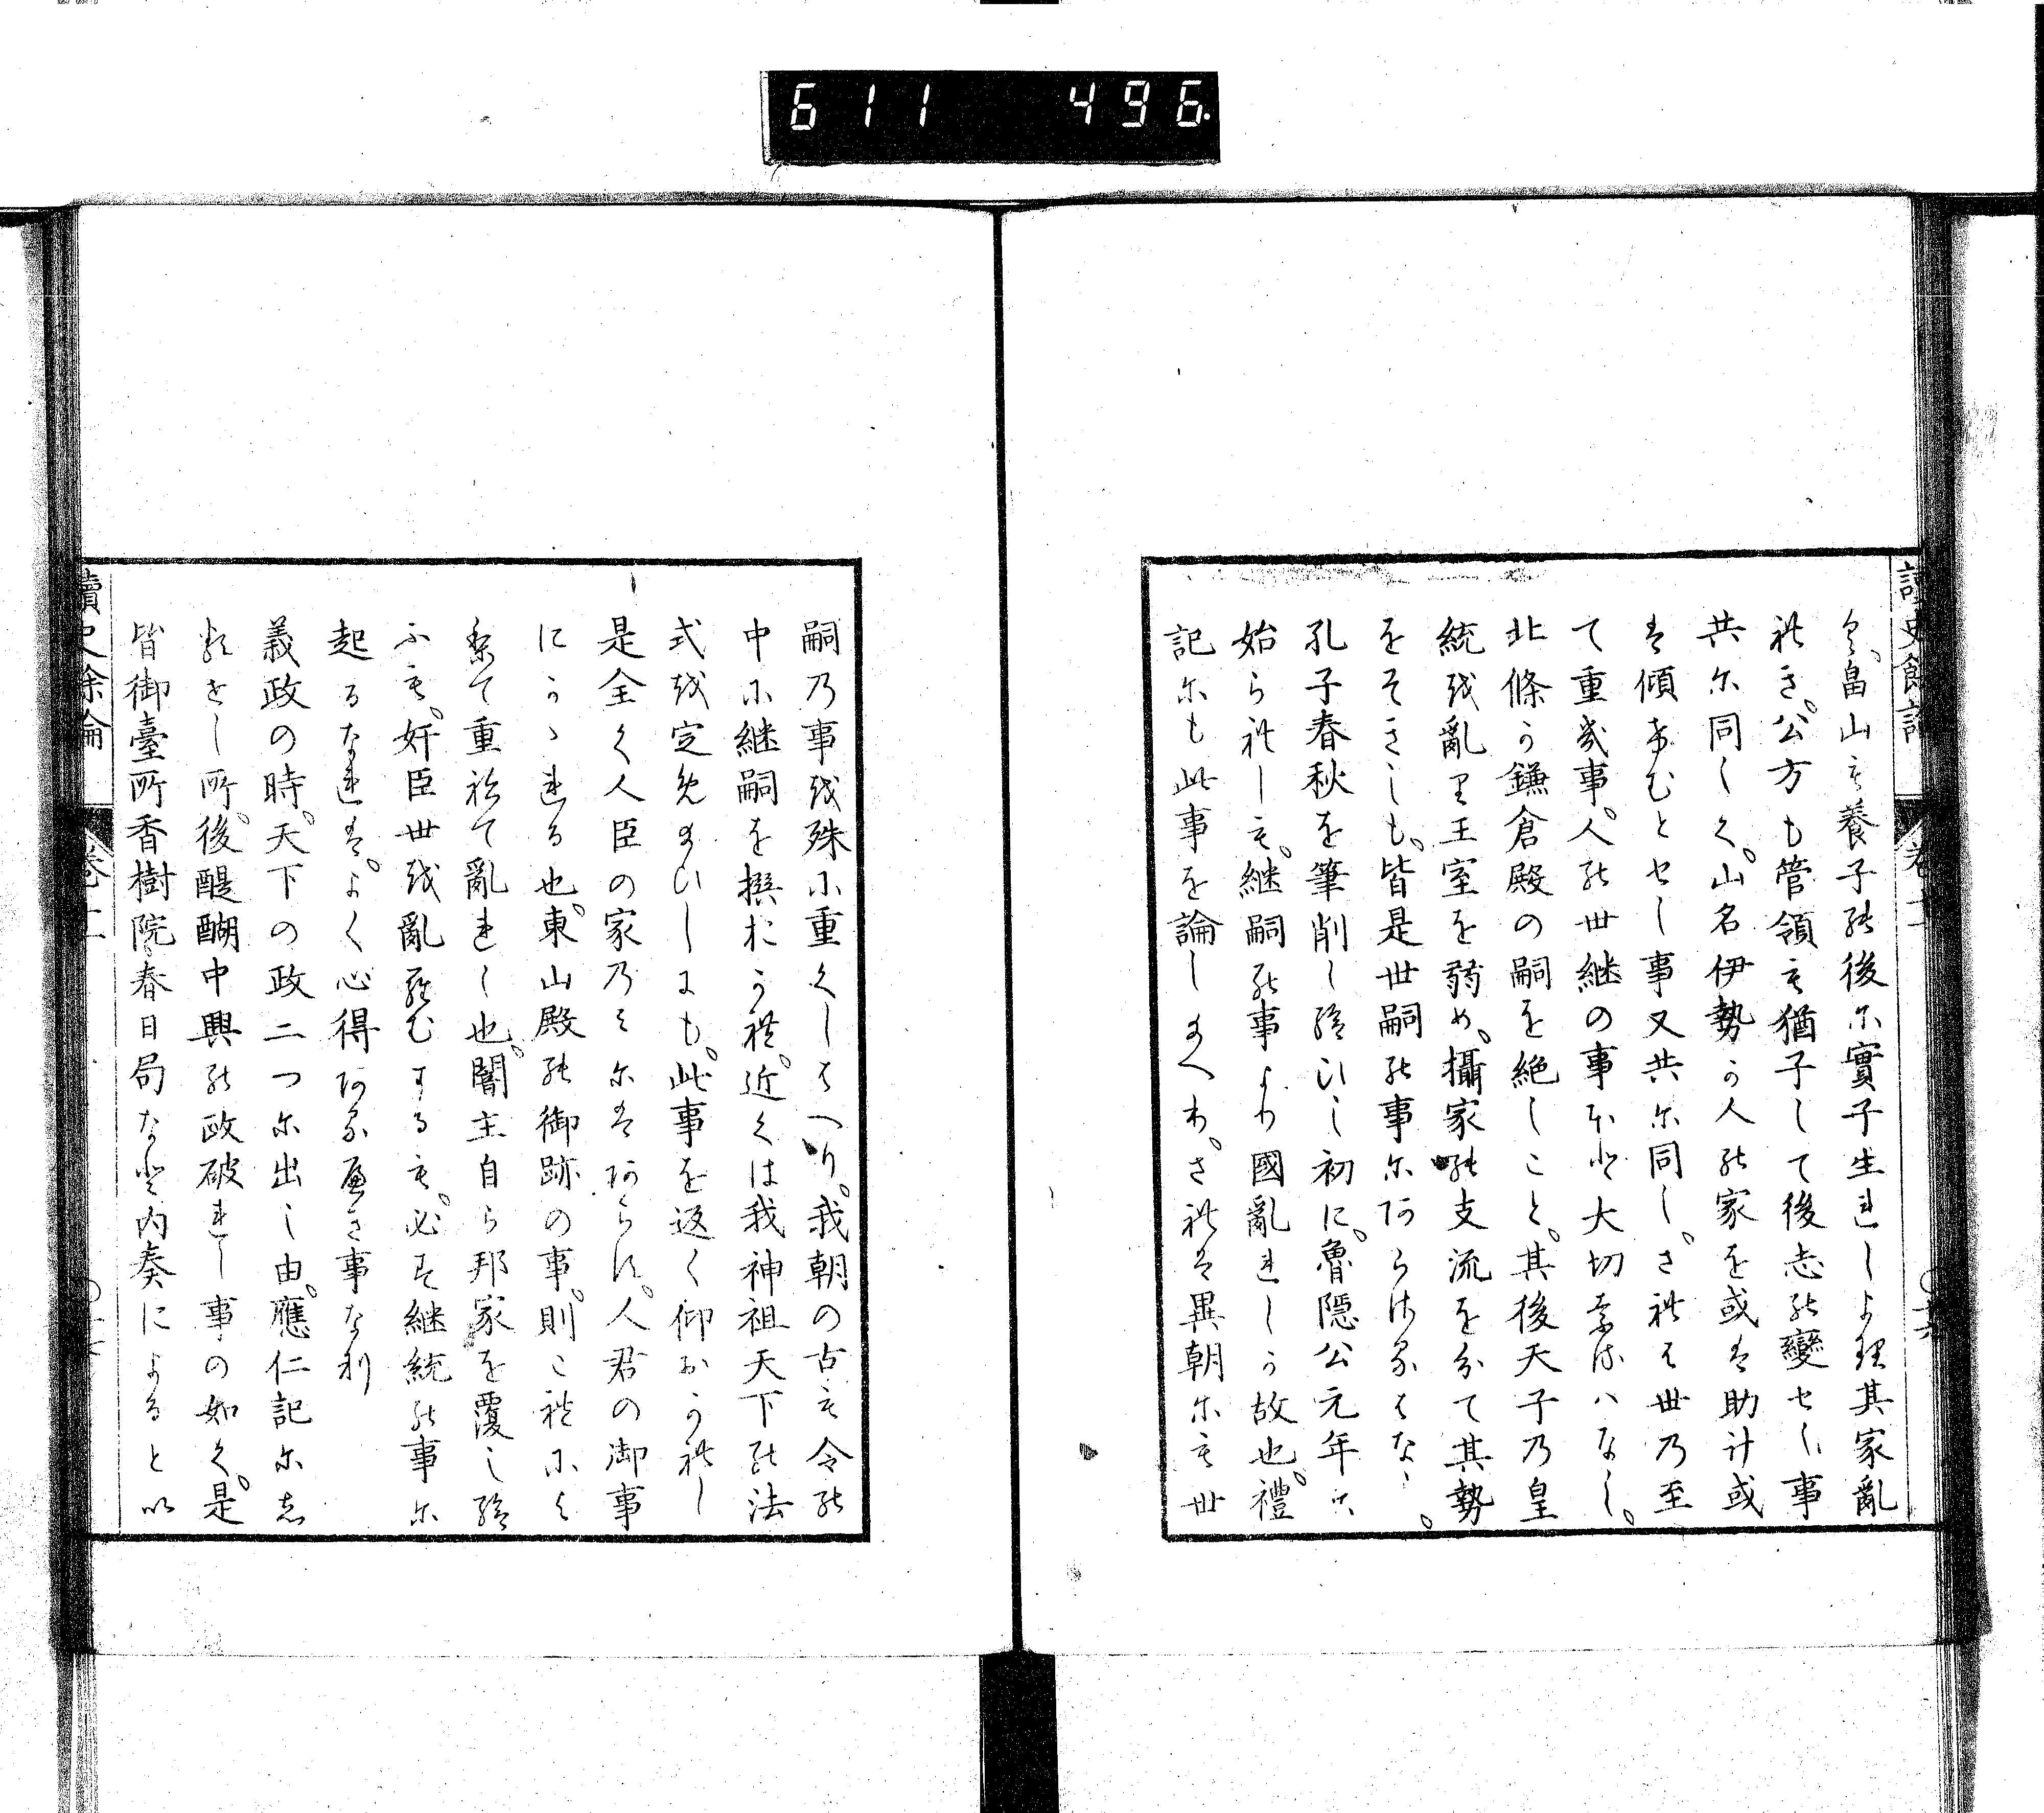 611 496.
讀史餘論
卷十一
し、畠山も養子の後に實子生れしより其家亂
れき。公方も管領も猶子して後志の變せし事
共に同しく。山名伊勢か人の家を或は助け或
は傾けむとせし事又共に同し。されは世の至
て重き事。人の世継の事ほと大切なるハなし。
北條か鎌倉殿の嗣を絶しこと。其後天子の皇
統を亂り王室を弱め。攝家の支流を分て其勢
をそきしも。皆是世嗣の事にあらさるはなし。
孔子春秋を筆削し給ひし初に。魯隱公元年に
始られしも。継嗣の事より國亂れしか故也。禮
記にも此事を論しまへり。されは異朝にも世
嗣の事を殊に重くしはへり。我朝の古も令の
中に継嗣を撰おかれ。近くは我神祖天下の法
式を定め給ひしにも。此事を返く仰おかれし
是全く人臣の家のみにはあらす。人君の御事
にかゝれる也。東山殿の御跡の事。則これによ
りて重ねて亂れし也。闇主自ら邦家を覆し給
ふも。奸臣世を亂らむするも。必す継統の事に
起るなれは。よく心得あるへき事なり
義政の時。天下の政二つに出し由。應仁記にし
るせし所。後醍醐中興の政破れし事の如く。是
皆御臺所香樹院春日局なと内奏によるとい
讀史餘論
卷十一